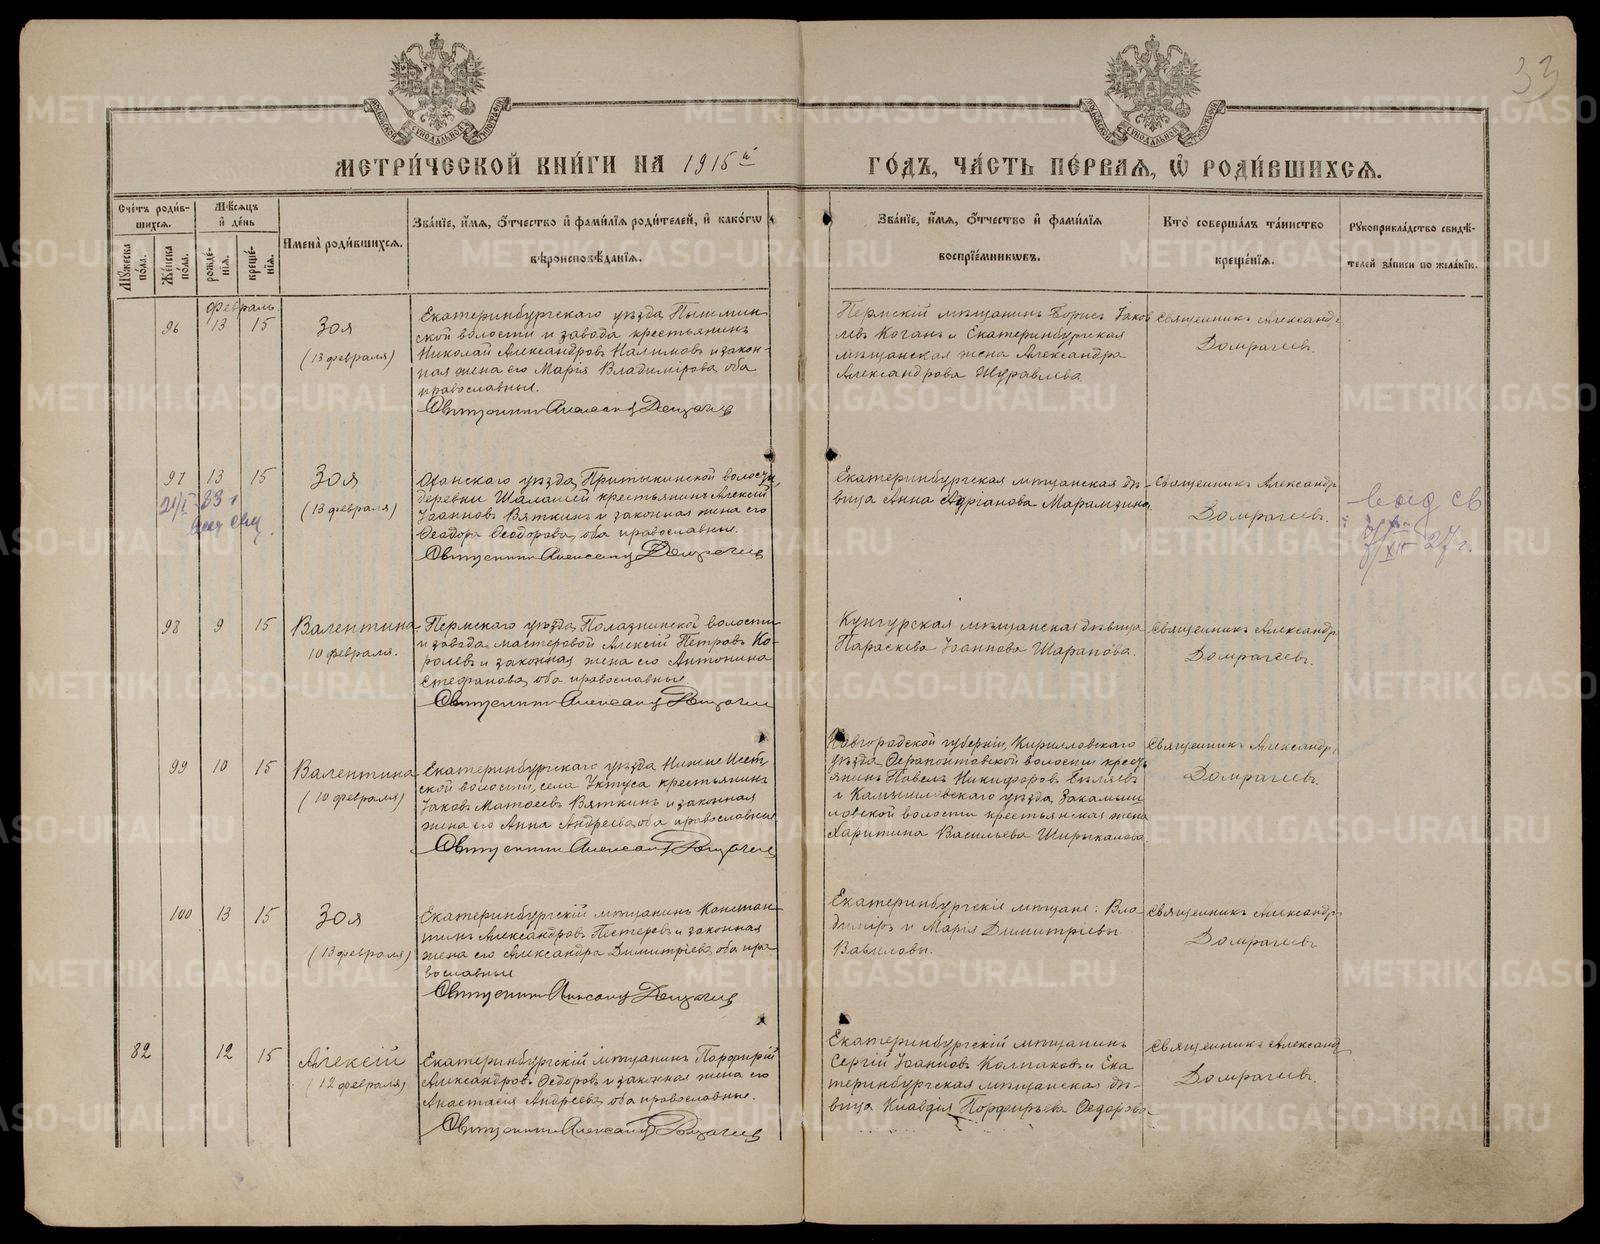 33
МЕТРИ́ЧЕСКОЙ КНИ́ГИ НА 1915й
ГО́ДЪ, ЧА́СТЬ ПЕ́РВАЯ, Ѡ҆ РОДИ́ВШИХСѦ.
Сче́тъ роди́в-
шихсѧ.
Мꙋ́жеска по́ла.
Же́нска по́ла.
Мѣ́сѧцъ и҆ де́нь
рожде́-
нїѧ.
креще́-
нїѧ.
И҆мена̀ роди́вшихсѧ.
Зва́нїе, и҆́мѧ, ѻ҆́тчество и҆ фами́лїѧ роди́телей, и҆ како́гѡ
вѣроисповѣ́данїѧ.
Зва́нїе, и҆́мѧ, ѻ҆́тчество и҆ фами́лїѧ
воспрїе́мникѡвъ.
Кто̀ соверша́лъ та́инство
креще́нїѧ.
Рꙋкоприкла́дство свидѣ́-
телей за́писи по жела́нїю.
Февраль.
96 13 15 Зоя
(13 февраля)
Екатеринбургскаго уѣзда Пышмин-
ской волости и завода крестьянинъ
Николай Александровъ Налимовъ и закон-
ная жена его Марія Владимірова, оба
православные.
Священникъ Александръ Домрачевъ
Пермскій мѣщанинъ Борисъ Іаков
левъ Коганъ и Екатеринбургская
мѣщанская жена Александра
Александрова Журавлева.
Священникъ Александръ
Домрачевъ.
97 13 15 Зоя
(13 февраля)
Оханскаго уѣзда, Притыкинской волости,
деревни Шалашей крестьянинъ Алексій
Іоанновъ Вяткинъ и законная жена его
Ѳеодора Ѳеодорова, оба православные.
Священникъ Александръ Домрачевъ
Екатеринбургская мѣщанская дѣ-
вица Анна Адріанова Марамзина.
Священникъ Александръ
Домрачевъ.
выд св
7/XII 27 г.
98 9 15 Валентина
10 февраля.
Пермскаго уѣзда, Полазнинской волости
и завода мастеровой Алексій Петровъ Ко-
ролевъ и законная жена его Антонина
Стефанова, оба православные.
Священникъ Александръ Домрачевъ
Кунгурская мѣщанская дѣвица
Параскева Іоаннова Шарапова.
Священникъ Александръ
Домрачевъ.
99 10 15 Валентина
(10 февраля)
Екатеринбургскаго уѣзда Нижне Исет
ской волости, села Уктуса крестьянинъ
Іаковъ Матѳеевъ Вяткинъ и законная
жена его Анна Андреева, оба православные
Священникъ Александръ Домрачевъ
Новгородской губерніи, Кирилловскаго
уѣзда Ѳерапонтовской волости кресть
янинъ Павелъ Никифоровъ Бѣляевъ
и Камышловскаго уѣзда, Закамыш
ловской волости крестьянская жена
Харитина Васильева Ширыкалова.
Священникъ Александръ
Домрачевъ.
100 13 15 Зоя
(13 февраля)
Екатеринбургскій мѣщанинъ Констан-
тинъ Александровъ Пестеревъ и законная
жена его Александра Димитріева, оба пра-
вославные
Священникъ Александръ Домрачевъ
Екатеринбургскіе мѣщане: Вла-
димиръ и Марія Димитріевы
Вавиловы.
Священникъ Александръ
Домрачевъ
82 12 15 Алексій
(12 февраля)
Екатеринбургскій мѣщанинъ Порфирій
Александровъ Ѳедоровъ и законная жена его
Анастасія Андреева, оба православные.
Священникъ Александръ Домрачевъ
Екатеринбургскій мѣщанинъ
Сергій Іоанновъ Колпаковъ и Ека
теринбургская мѣщанская дѣ-
вица Клавдія Порфирьева Ѳедорова.
Священникъ Александръ
Домрачевъ.
METRIKI.GASO-URAL.RU